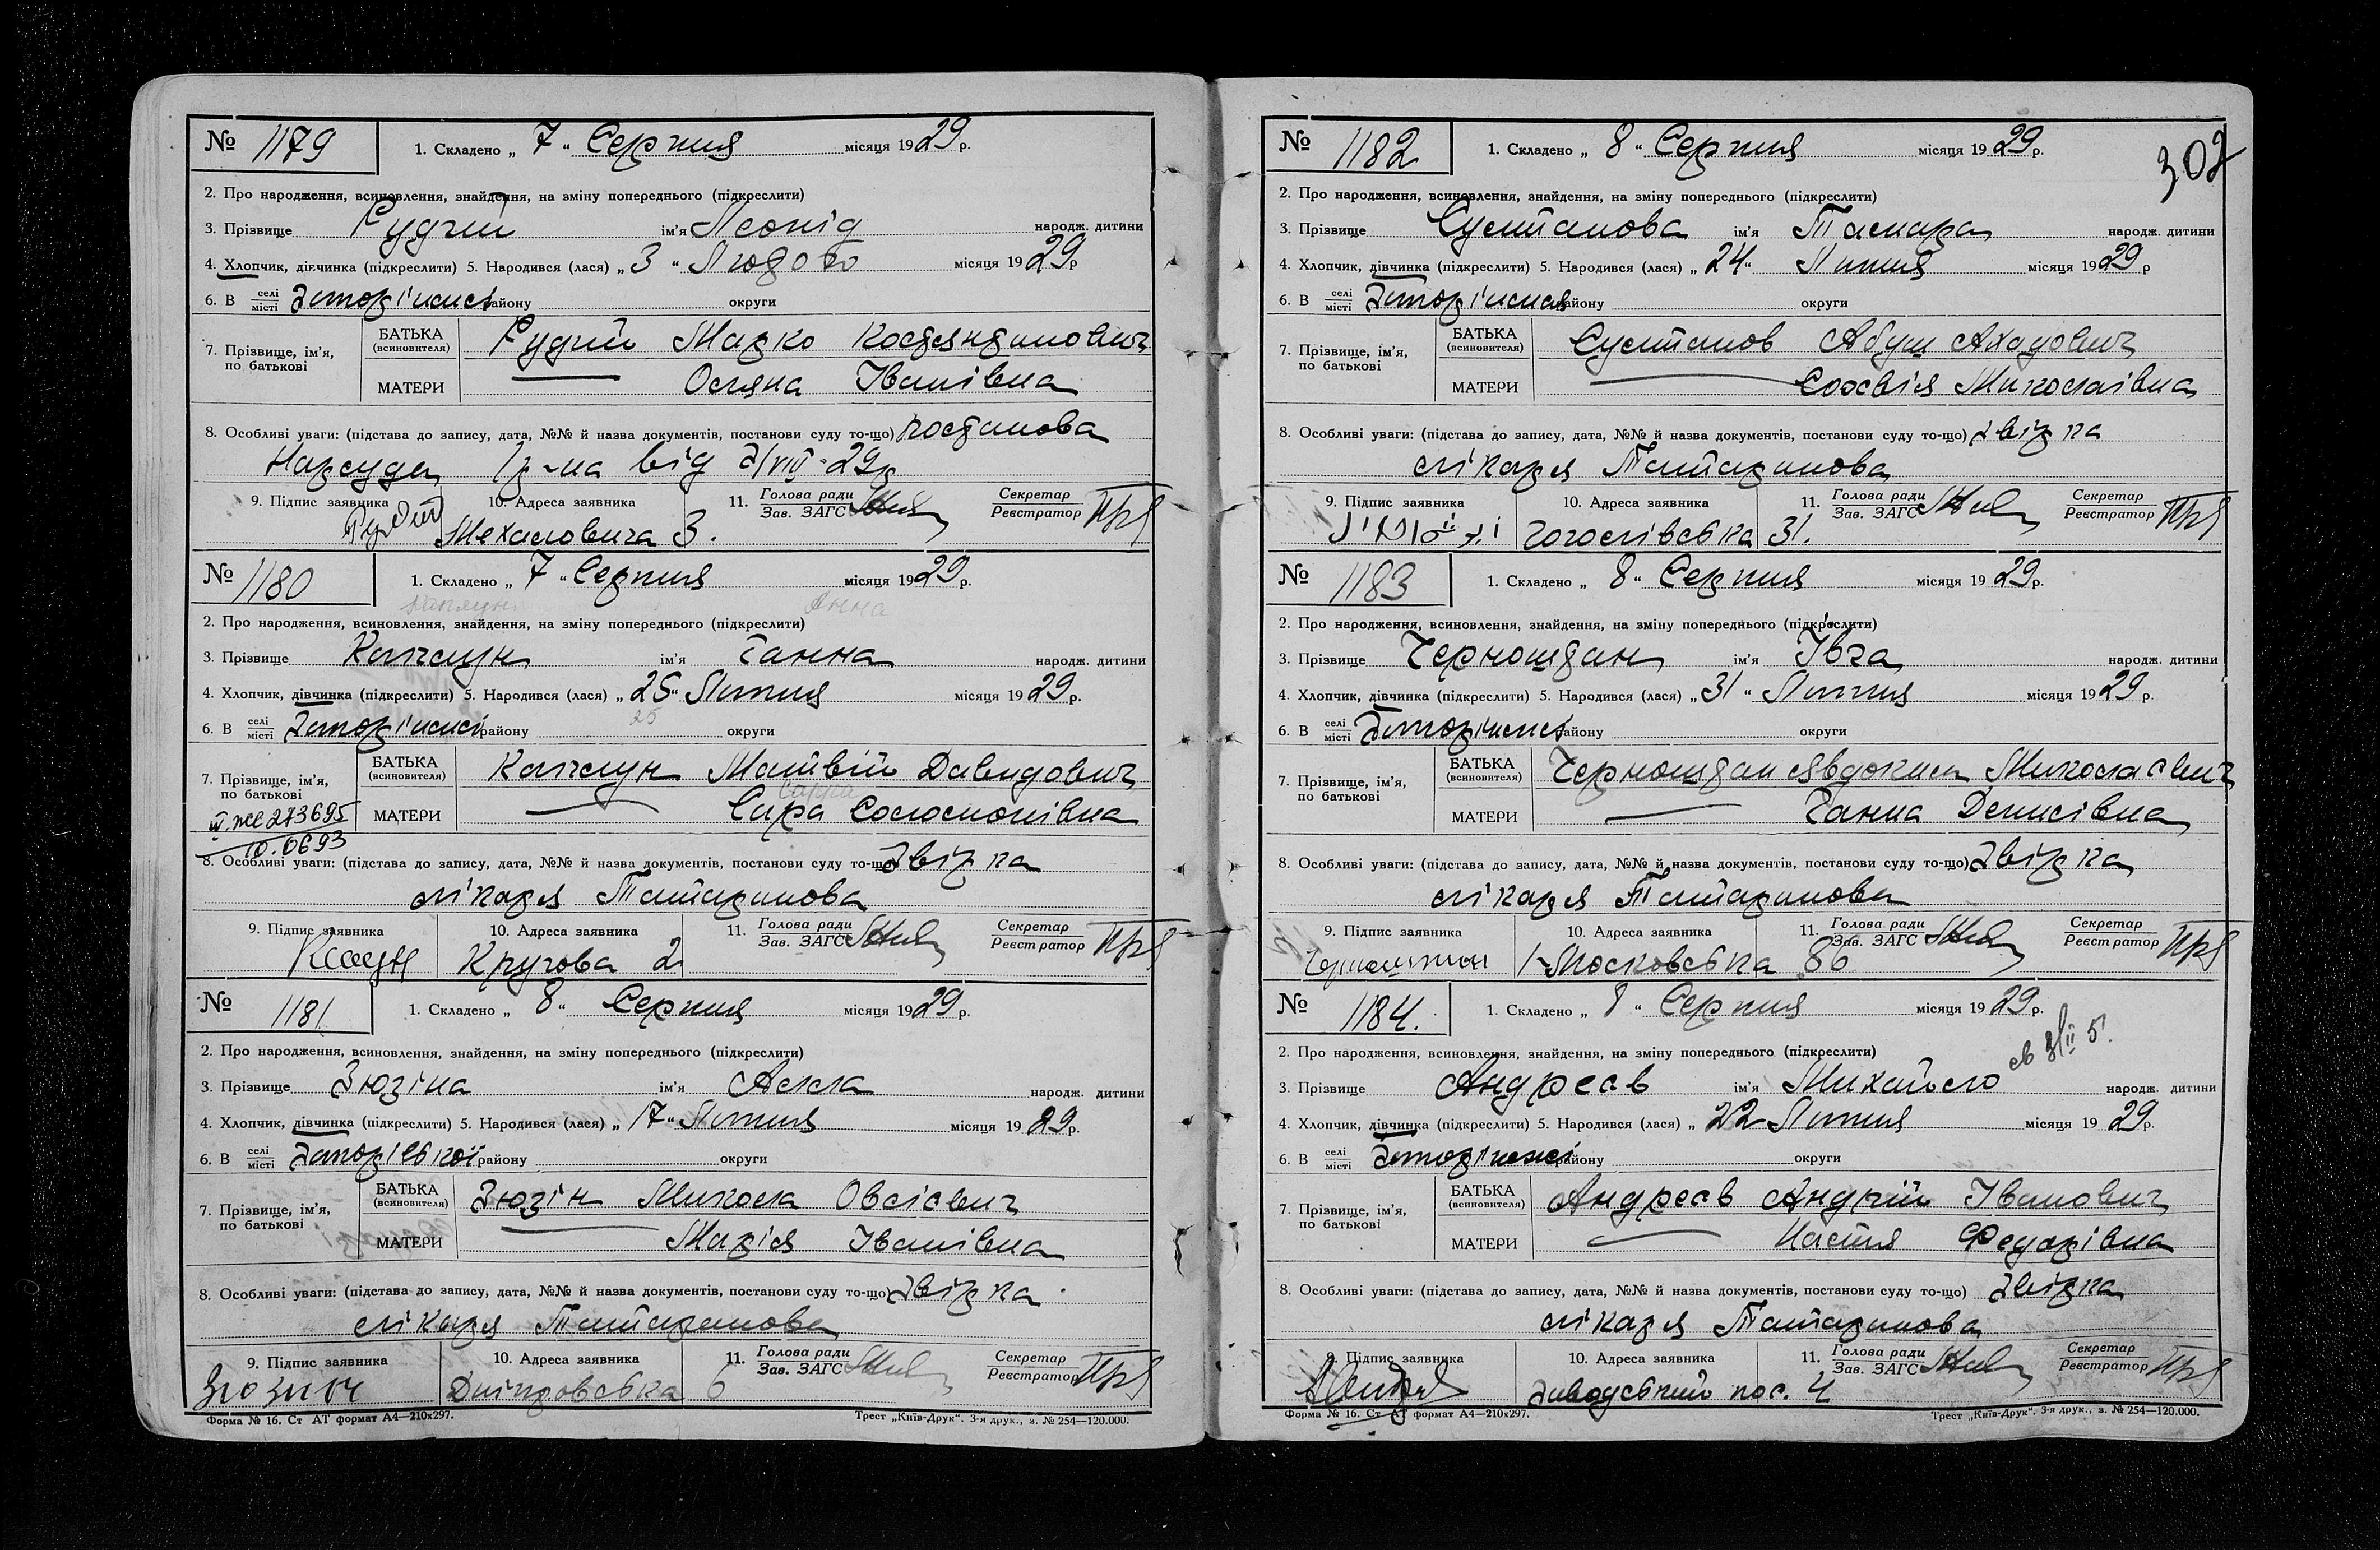 № 1179 1. Складено „ 7 “ Серпня місяця 1929 р.
2. Про народження, всиновлення, знайдення, на зміну попереднього (підкреслити)
3. Прізвище Рудчій ім'я Леонід народж. дитини
4. Хлопчик, дівчинка (підкреслити) 5. Народився (лася) „ 3 “ Лютого місяця 1929 р
6. В селі місті Запоріжжі району округи
7. Прізвище, ім'я, по батькові
БАТЬКА (всиновителя) Рудчій Марко Костянтинович
МАТЕРИ Оляна Іванівна
8. Особливі уваги: (підстава до запису, дата, №№ й назва документів, постанови суду то-що) постанова
Нарсуда від
9. Підпис заявника 10. Адреса заявника 11. Голова ради Зав. ЗАГС Секретар Реєстратор
3.
№ 1180 1. Складено „ 7 “ Серпня місяця 1929 р.
Анна
2. Про народження, всиновлення, знайдення, на зміну попереднього (підкреслити)
3. Прізвище Каплун ім'я Ганна народж. дитини
4. Хлопчик, дівчинка (підкреслити) 5. Народився (лася) „ 25 “ Липня місяця 1929 р.
25
6. В селі місті Запоріжжі району округи
7. Прізвище, ім'я, по батькові
БАТЬКА (всиновителя) Каплун Матвій Давидович
Сарра
МАТЕРИ Сира Соломонівна
273695
8. Особливі уваги: (підстава до запису, дата, №№ й назва документів, постанови суду то-що) Звірка
лікаря Татаринова
9. Підпис заявника 10. Адреса заявника 11. Голова ради Зав. ЗАГС Секретар Реєстратор
Кругова 2
№ 1181 1. Складено „ 8 “ Серпня місяця 1929 р.
2. Про народження, всиновлення, знайдення, на зміну попереднього (підкреслити)
3. Прізвище Зюзіна ім'я Алла народж. дитини
4. Хлопчик, дівчинка (підкреслити) 5. Народився (лася) „ 17 “ Липня місяця 1929 р.
6. В селі місті району округи
7. Прізвище, ім'я, по батькові
БАТЬКА (всиновителя) Зюзін Микола Овсієвич
МАТЕРИ Марія Іванівна
8. Особливі уваги: (підстава до запису, дата, №№ й назва документів, постанови суду то-що) Звірка
лікаря Татаринова
9. Підпис заявника 10. Адреса заявника 11. Голова ради Зав. ЗАГС Секретар Реєстратор
Дніпровська 6
Форма № 16. Ст АТ формат А4—210х297. Трест „Київ-Друк“. 3-я друк., з. № 254—120.000.
302
№ 1182 1. Складено „ 8 “ Серпня місяця 1929 р.
2. Про народження, всиновлення, знайдення, на зміну попереднього (підкреслити)
3. Прізвище Султанова ім'я Тамара народж. дитини
4. Хлопчик, дівчинка (підкреслити) 5. Народився (лася) „ 24 “ Липня місяця 1929 р
6. В селі місті Запоріжжя району округи
7. Прізвище, ім'я, по батькові
БАТЬКА (всиновителя) Султанов Абуш Ахадович
МАТЕРИ Софія Миколаївна
8. Особливі уваги: (підстава до запису, дата, №№ й назва документів, постанови суду то-що) Звірка
лікаря Татаринова
9. Підпис заявника 10. Адреса заявника 11. Голова ради Зав. ЗАГС Секретар Реєстратор
Гоголівська 31.
№ 1183 1. Складено „ 8 “ Серпня місяця 1929 р.
2. Про народження, всиновлення, знайдення, на зміну попереднього (підкреслити)
3. Прізвище Чорноштан ім'я Івга народж. дитини
4. Хлопчик, дівчинка (підкреслити) 5. Народився (лася) „ 31 “ Липня місяця 1929 р.
6. В селі місті Запоріжжі району округи
7. Прізвище, ім'я, по батькові
БАТЬКА (всиновителя) Чорноштан Явдоким Миколаєвич
МАТЕРИ Ганна Денисівна
8. Особливі уваги: (підстава до запису, дата, №№ й назва документів, постанови суду то-що) Звірка
лікаря Татаринова
9. Підпис заявника 10. Адреса заявника 11. Голова ради Зав. ЗАГС Секретар Реєстратор
Чорноштан 1-Московська 86
№ 1184. 1. Складено „ 8 “ Серпня місяця 1929 р.
2. Про народження, всиновлення, знайдення, на зміну попереднього (підкреслити)
3. Прізвище Андреєв ім'я Михайло народж. дитини
4. Хлопчик, дівчинка (підкреслити) 5. Народився (лася) „ 22 Липня місяця 1929 р.
6. В селі місті Запоріжжі району округи
7. Прізвище, ім'я, по батькові
БАТЬКА (всиновителя) Андреєв Андрій Іванович
МАТЕРИ Настя Федорівна
8. Особливі уваги: (підстава до запису, дата, №№ й назва документів, постанови суду то-що) Звірка
лікаря Татаринова
9. Підпис заявника 10. Адреса заявника 11. Голова ради Зав. ЗАГС Секретар Реєстратор
Заводський пос. 4
Форма № 16. Ст АТ формат А4—210х297. Трест „Київ-Друк“. 3-я друк., з. № 254—120.000.